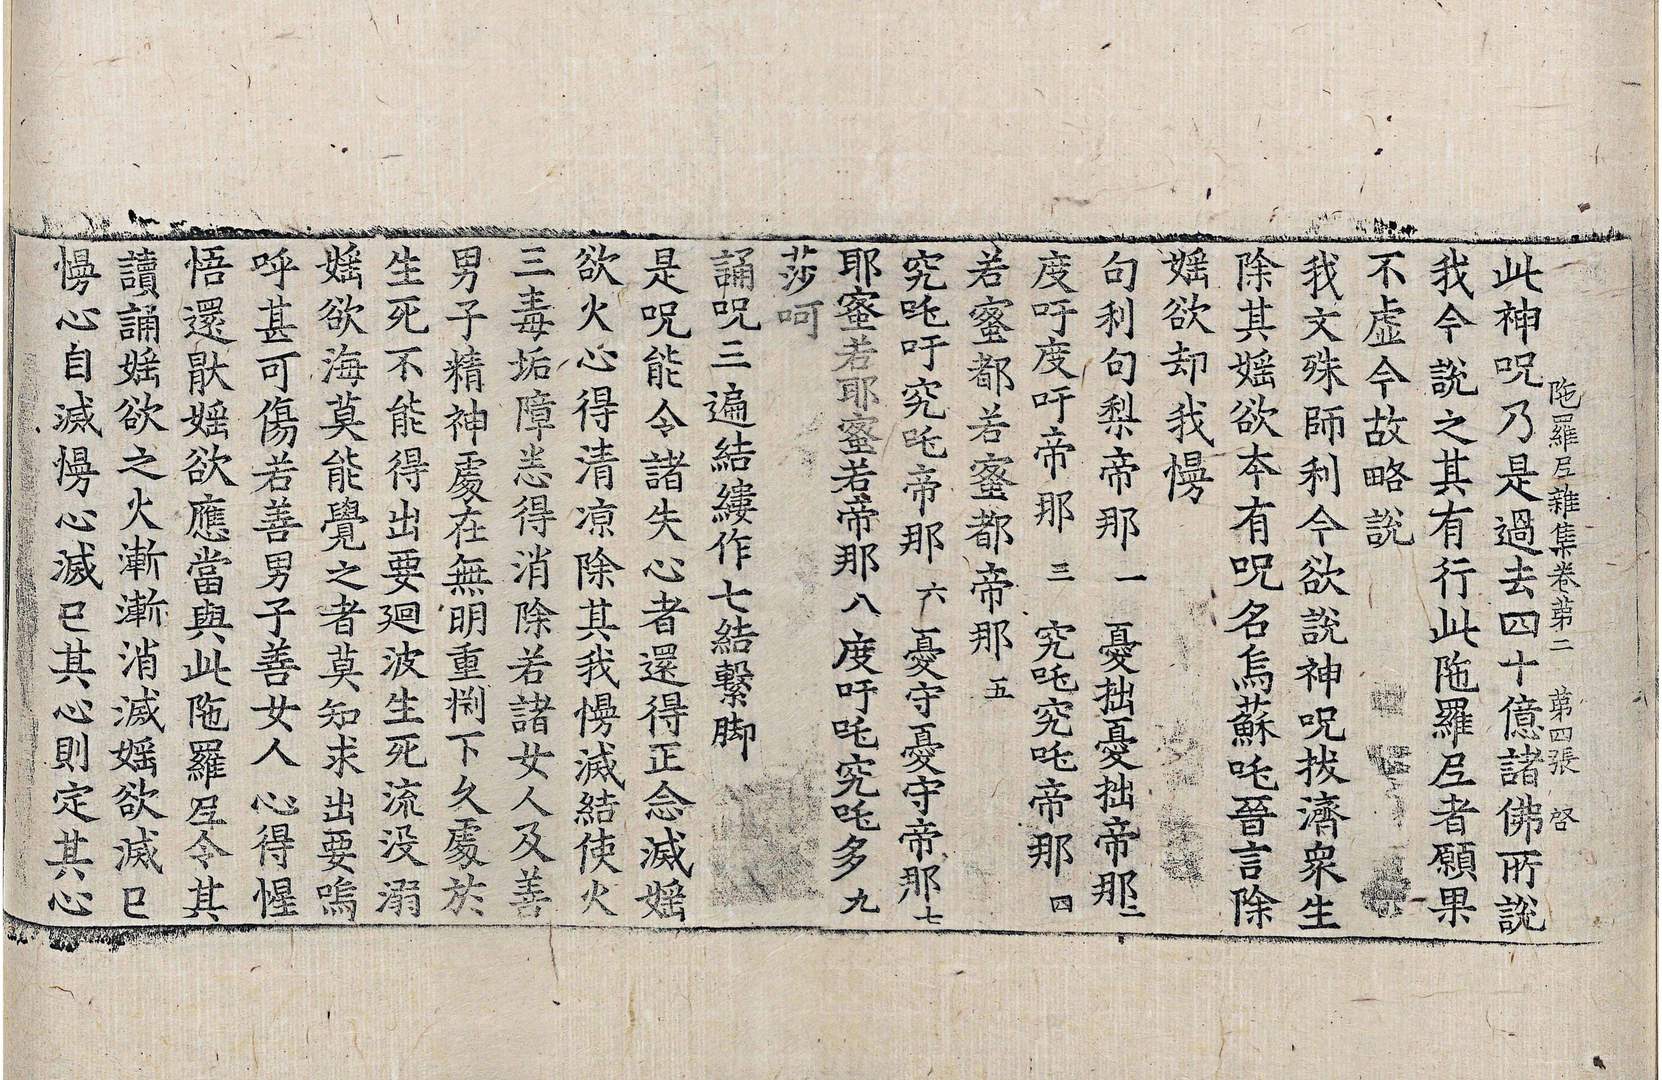 陁羅尼雜集卷第二 第四張 啓
此神呪乃是過去四十億諸佛所說
我今說之其有行此陁羅尼者願果
不虛今故略說
我文殊師利今欲說神呪拔濟衆生
除其婬欲本有呪名烏蘇吒晉言除
婬欲却我慢
句利句梨帝那 一 憂拙憂拙帝那 二
度吁度吁帝那 三 究吒究吒帝那 四
若蜜都若蜜都帝那 五
究吒吁究吒帝那 六 憂守憂守帝那 七
耶蜜若耶蜜若帝那 八 度吁吒究吒多 九
莎呵
誦呪三遍結縷作七結繫脚
是呪能令諸失心者還得正念滅婬
欲火心得清凉除其我慢滅結使火
三毒垢障悉得消除若諸女人及善
男子精神處在無明重淵下久處於
生死不能得出要迴波生死流没溺
婬欲海莫能覺之者莫知求出要嗚
呼甚可傷若善男子善女人心得惺
悟還猒婬欲應當與此陁羅尼令其
讀誦婬欲之火漸漸消滅婬欲滅已
慢心自滅慢心滅已其心則定其心